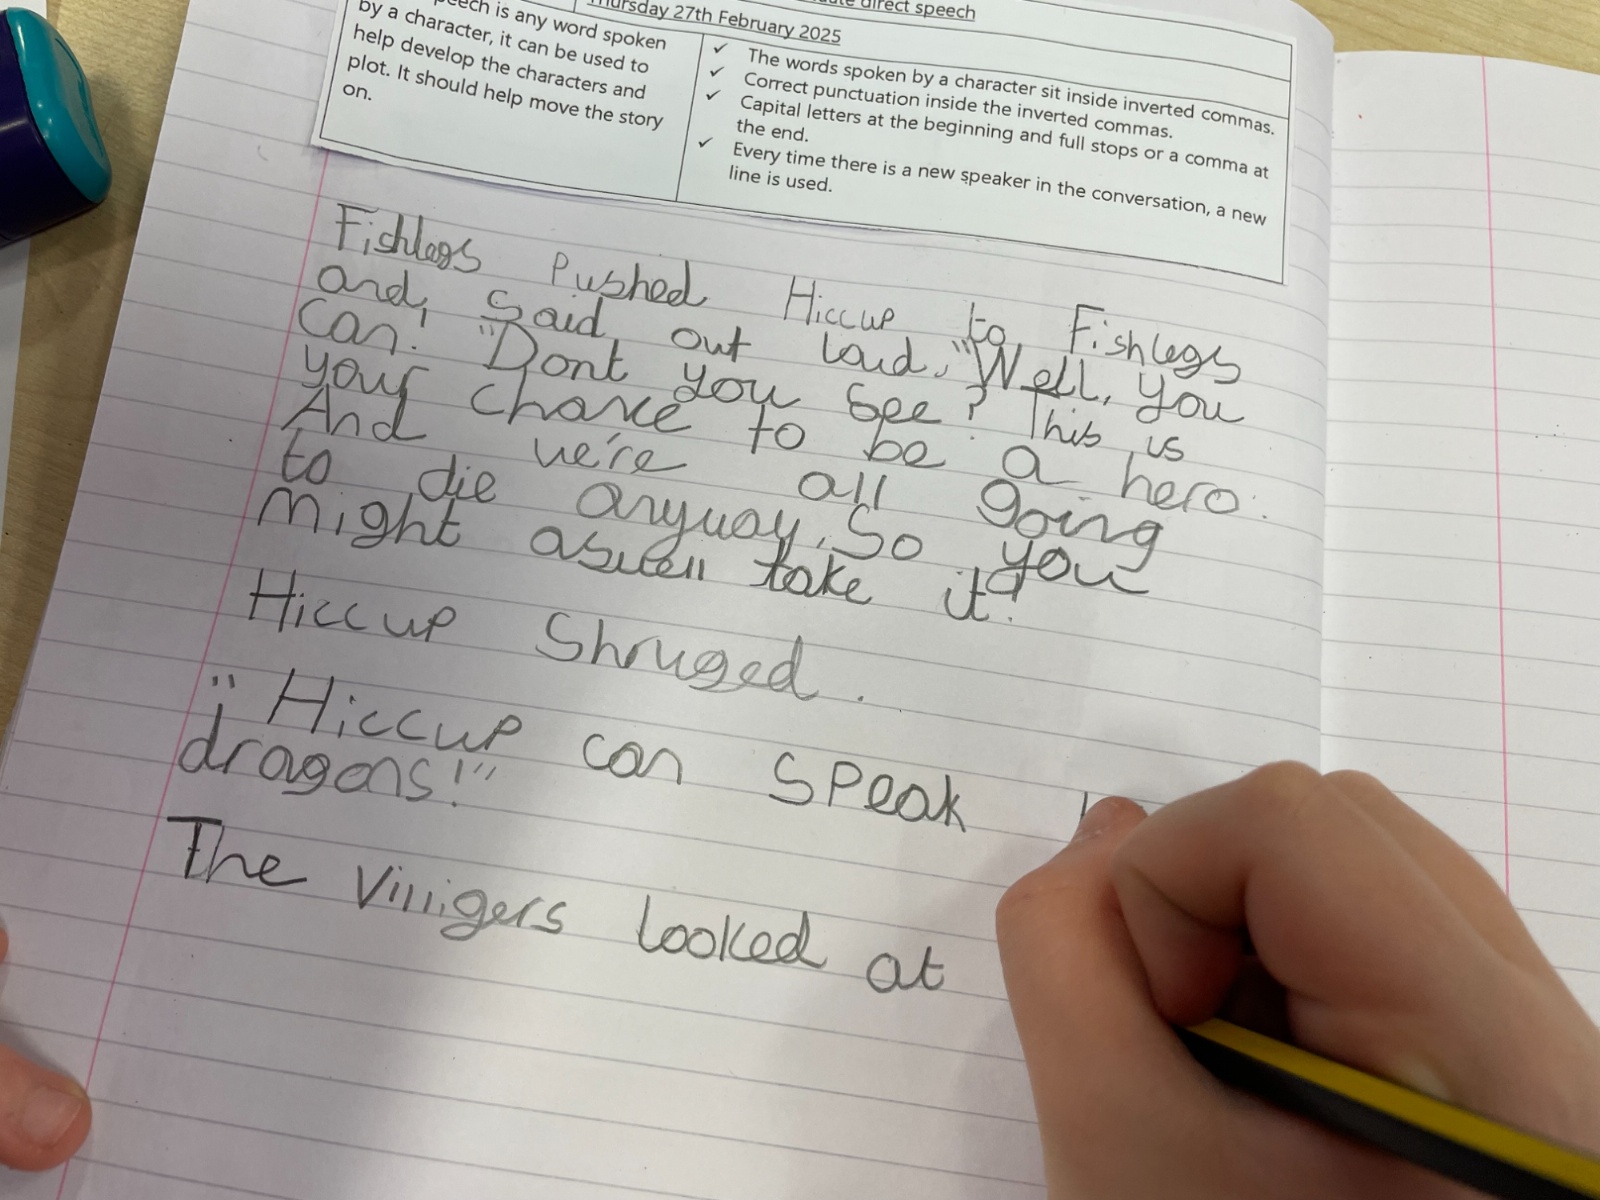 direct speech
Thursday 27th February 2025
speech is any word spoken
by a character, it can be used to
help develop the characters and
plot. It should help move the story
on.
✓ The words spoken by a character sit inside inverted commas.
✓ Correct punctuation inside the inverted commas.
✓ Capital letters at the beginning and full stops or a comma at
the end.
✓ Every time there is a new speaker in the conversation, a new
line is used.
Fishlegs Pushed Hiccup to Fishlegs
and, Said out loud, "Well, you
can. "Dont you see? This is
your chance to be a hero.
And we're all going
to die anyway, So you
might aswell take it!
Hiccup Shruged.
"Hiccup can SPeak
dragons!"
The Villigers looked at